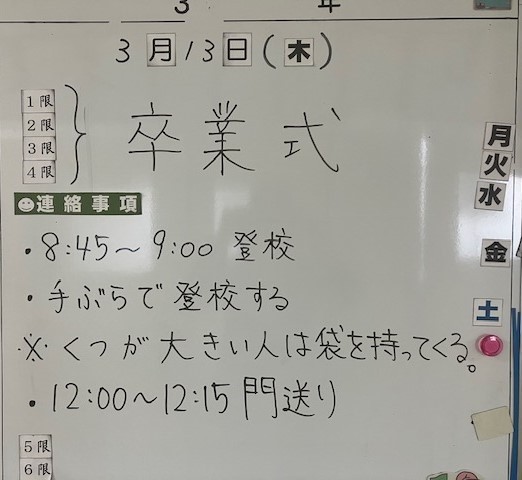 3 年
3月13日(木)
1限
2限
3限
4限
卒業式
連絡事項
・8:45～9:00 登校
・手ぶらで登校する
※くつが大きい人は袋を持ってくる。
・12:00～12:15 門送り
5限
6限
月
火
水
金
土